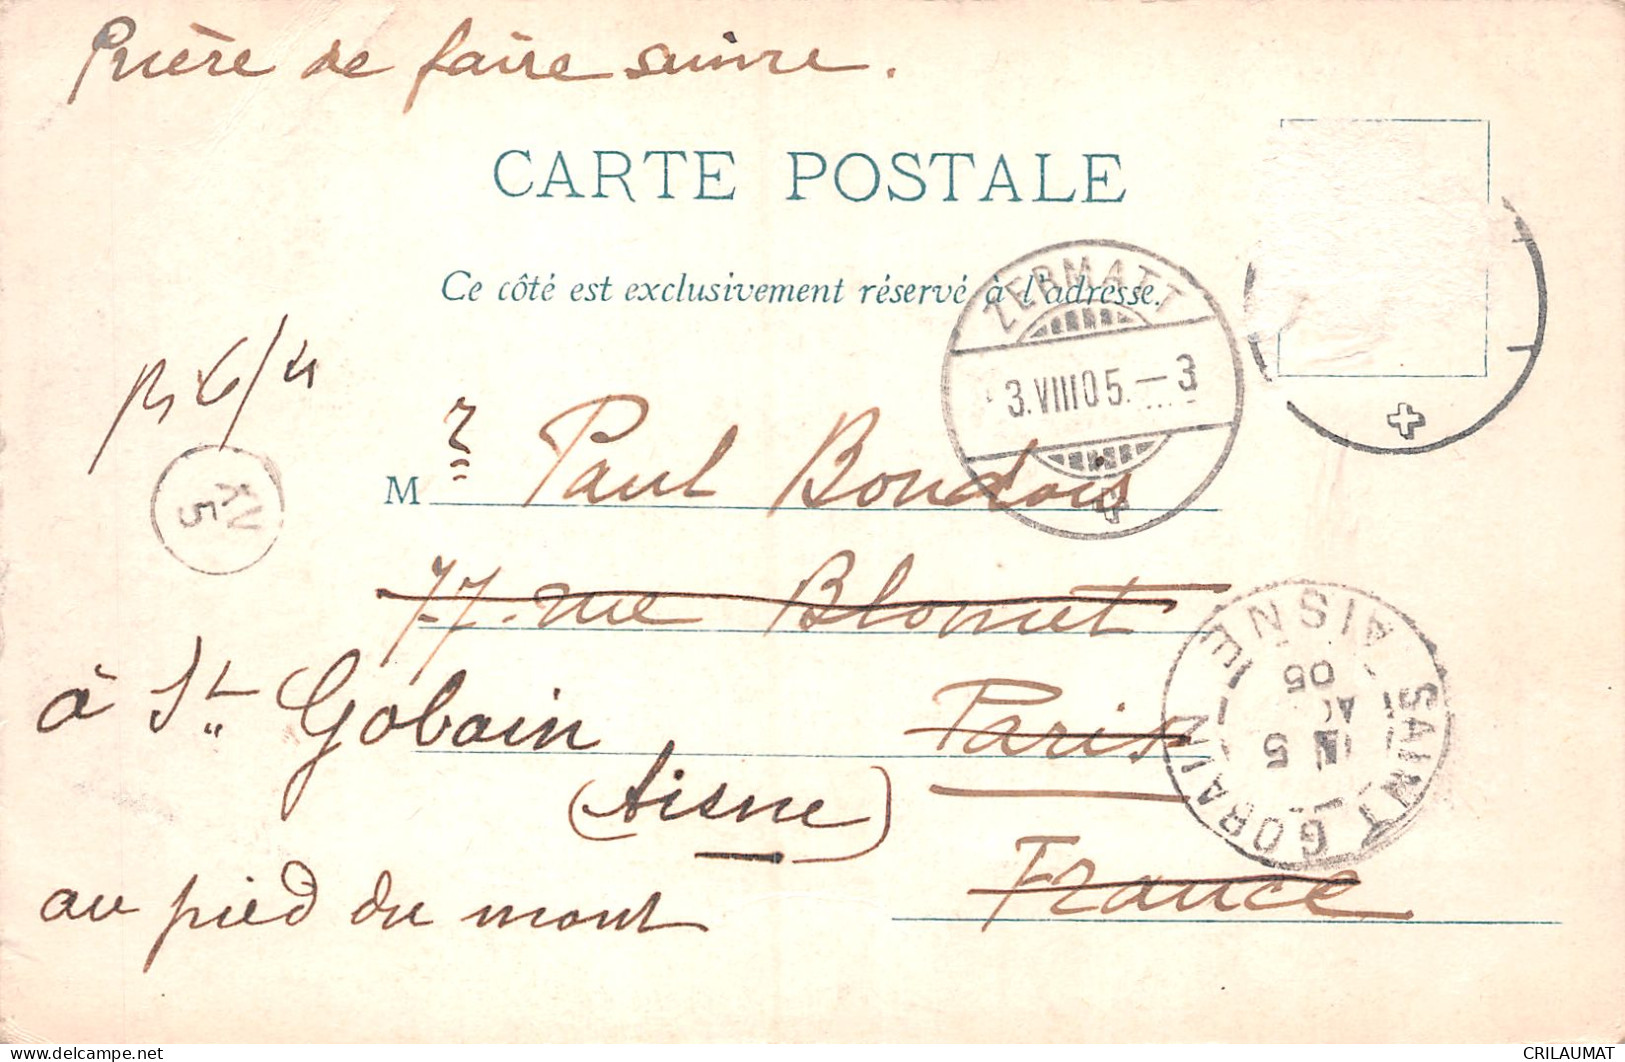 Prière de faire suivre.
CARTE POSTALE
Ce côté est exclusivement réservé à l'adresse.
ZERMATT
3.VIII05.—3
XV
5
M r Paul Bondois
77. rue Blomet
Paris
France
à St Gobain
(Aisne)
au pied du mont
SAINT GOBAIN
AISNE
5
05
CRILAUMAT